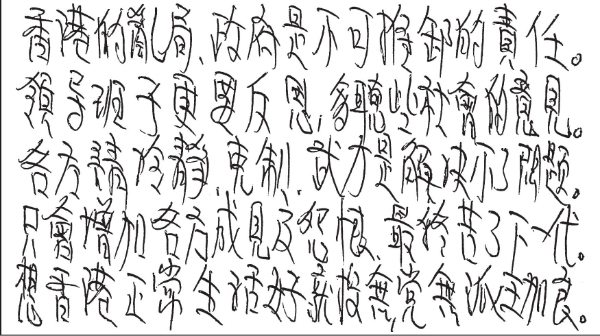 香港的亂局、政府是不可推卸的責任。
領导班子更要反思，多聽些社會的意見。
各方請冷靜、克制、武力是解決不了問題。
只會增加各方成見及怨恨，最終苦了下一代。
想香港正常生活好就投無党無派王加良。